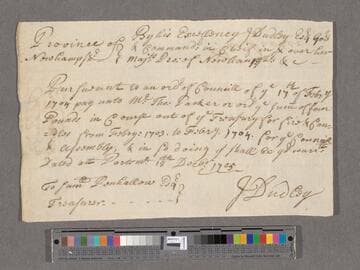 Province of By his Excellency J Dudley Esqr Govr
Newhampsr & Commandr in Chief in & over her
Majtys Prov: of Newhampsr &c
Pursuant to an ordr of Councill of ye 17th of Febry
1704 pay unto Mr Tho Parker ye sum of four
Pounds in Comon out of ye Treasury for fire & Can=
dles from Febry 1703. to Febry 1704. for ye Councill
& Assembly, & in so doing ys shall be yr warrt
Dated att Portsmo 18th Decbr 1705
To Samll Penhallow Esqr
Treasurer
J Dudley